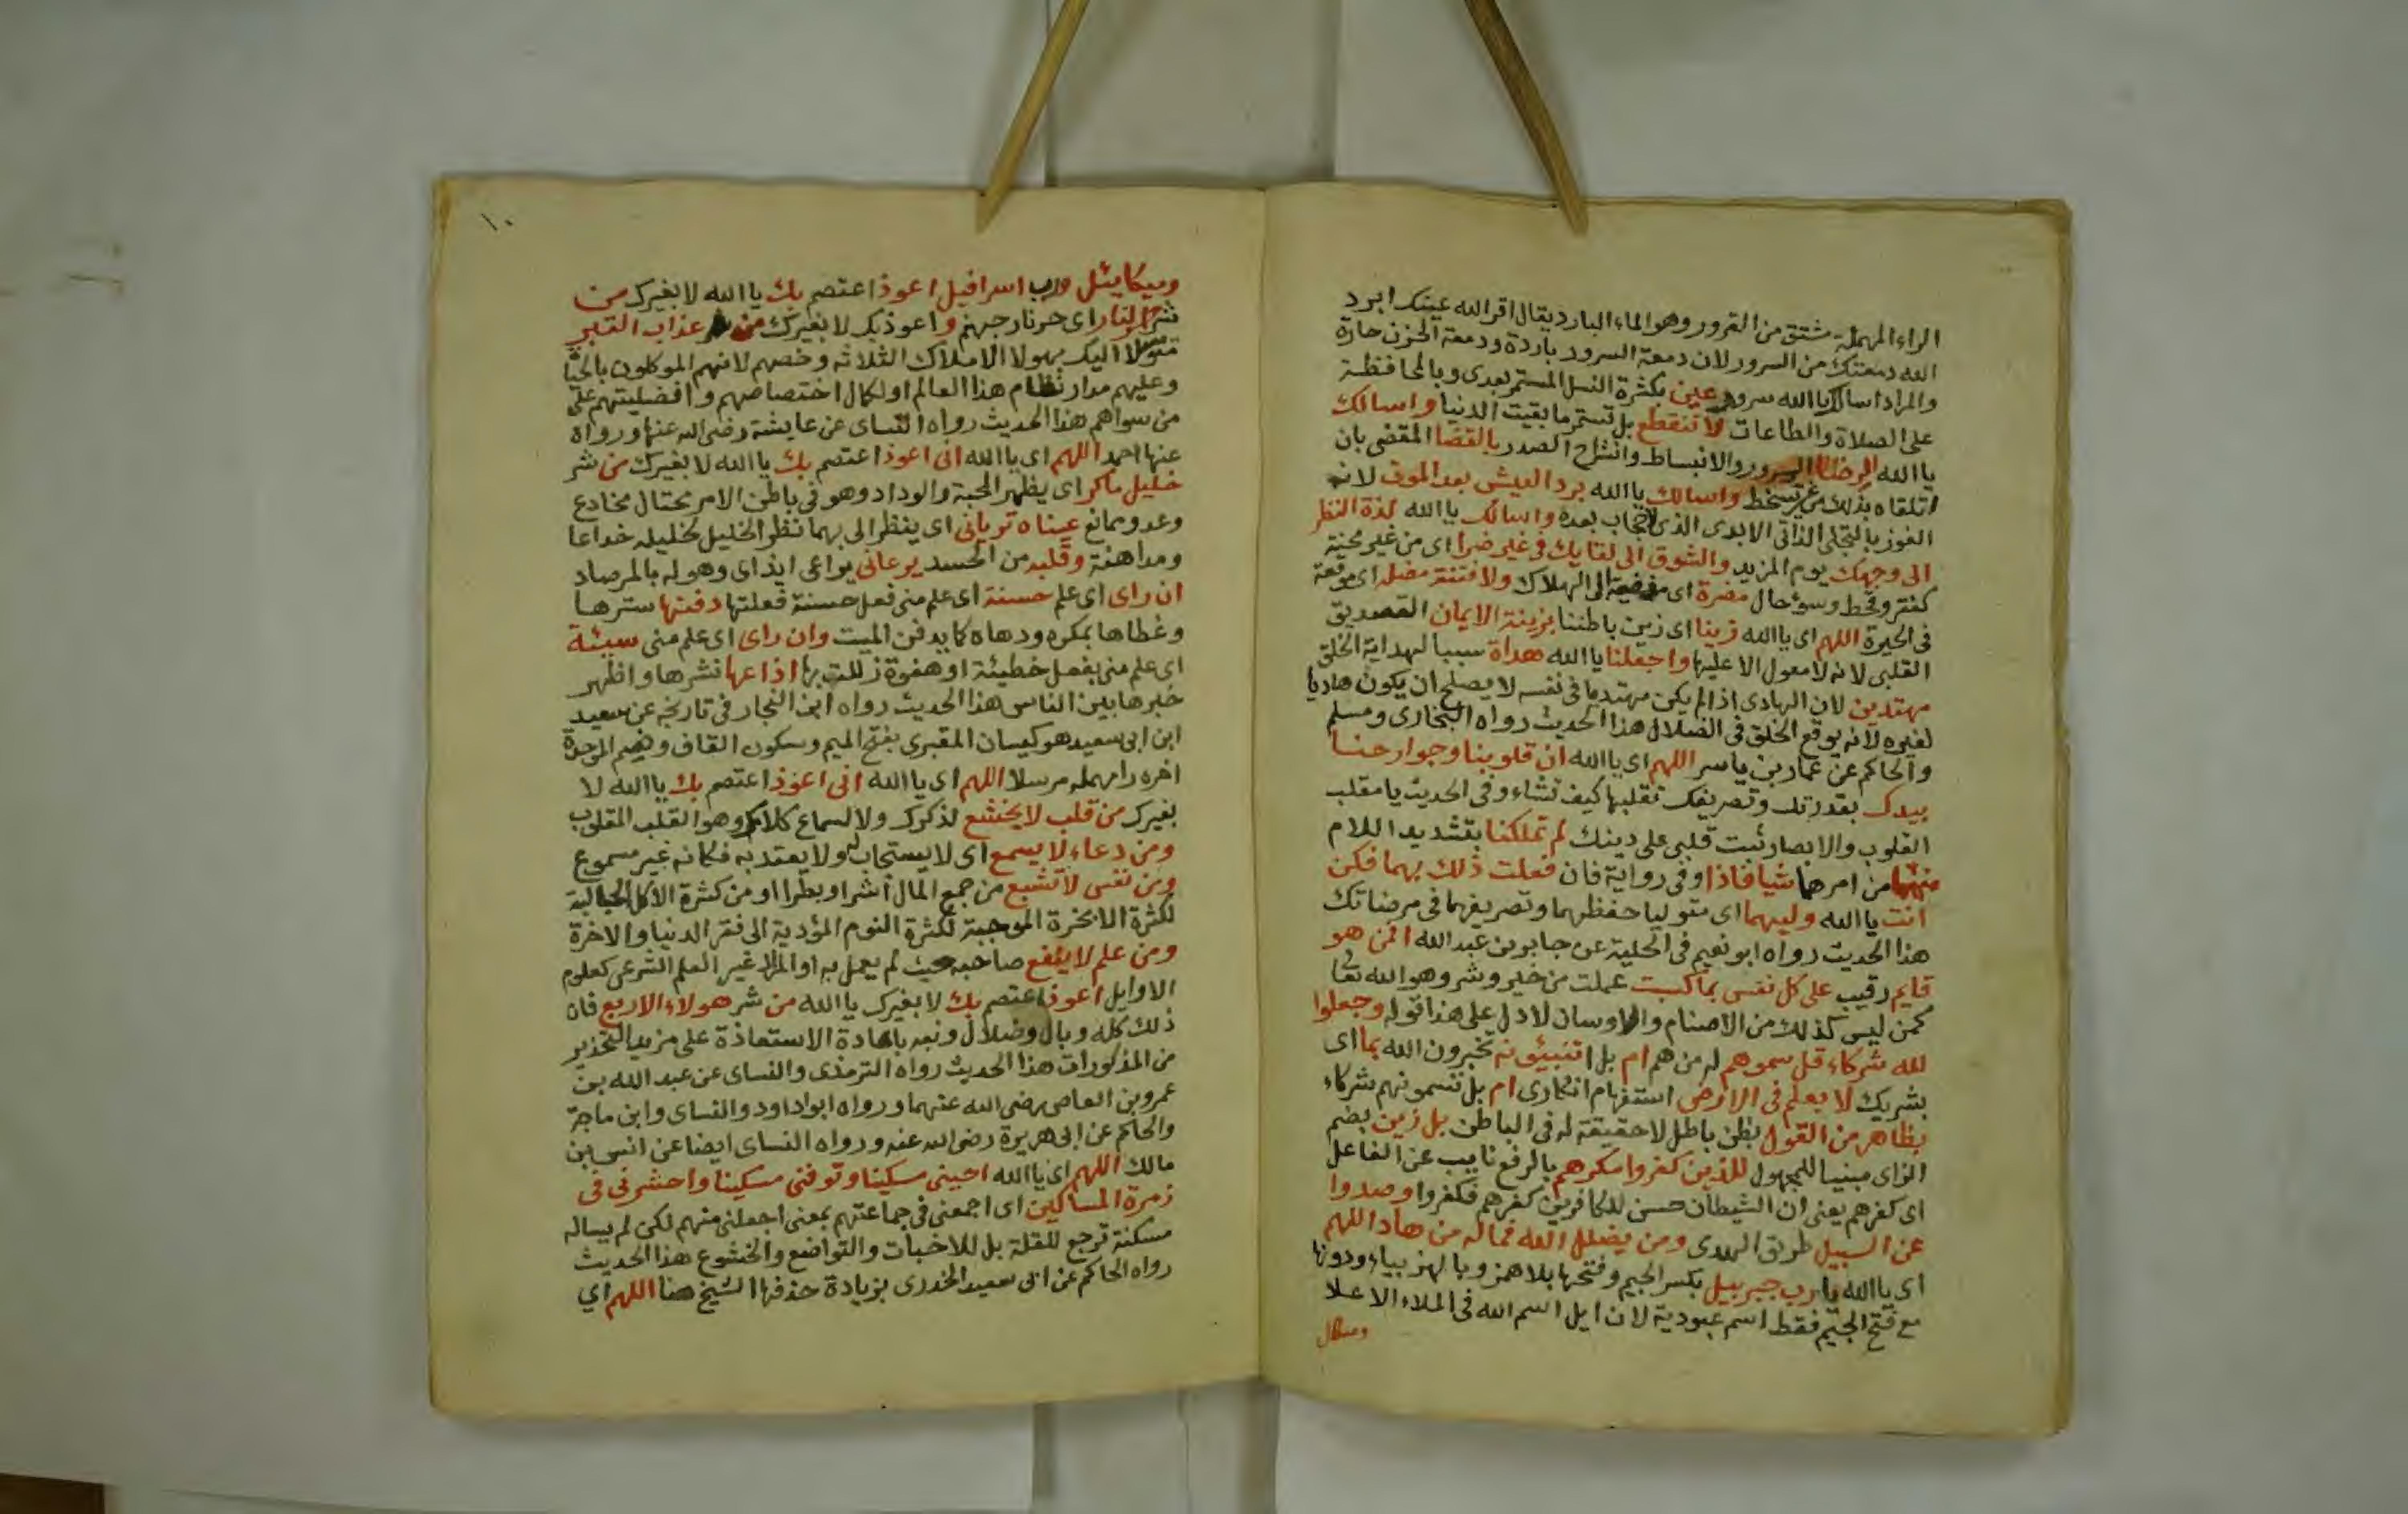 الراء المهملة مشتق من القرور وهو الماء البارد يقال اقر الله عينك ابرد
الله دمعتك من السرور لان دمعة السرور باردة ودمعة الحزن حارة
والمراد اسالك يا الله سرور عين بكثرة النسل المستمر بعدى وبالمحافظة
على الصلاة والطاعات لا تنقطع بل تستمر ما بقيت الدنيا واسالك
يا الله الرضا السرور والانبساط وانشراح الصدر بالقضا المقضى بان
اتلقاه بذلك من غير تسخط واسالك يا الله برد العيش بعد الموت لانه
الفوز بالتجلى الذاتى الابدى الذى لا حجاب بعده واسالك يا الله لذة النظر
الى وجهك يوم المزيد والشوق الى لقايك فى غير ضرا اى من غير محنة
كفقر وقحط وسوء حال مضرة اى مفضية الى الهلاك ولا فتنة مضلة اى موقعة
فى الحيرة اللهم اى يا الله زينا اى زين باطننا بزينة الايمان التصديق
القلبى لانه لا معول الا عليها واجعلنا يا الله هداة سببا لهداية الخلق
مهتدين لان الهادى اذا لم يكن مهتديا فى نفسه لا يصلح ان يكون هاديا
لغيره لانه يوقع الخلق فى الضلال هذا الحديث رواه البخارى ومسلم
والحاكم عن عمار بن ياسر اللهم اى يا الله ان قلوبنا وجوارحنا
بيدك بقدرتك وتصريفك تقلبها كيف تشاء وفى الحديث يا مقلب
القلوب والابصار ثبت قلبى على دينك لم تملكنا بتشديد اللام
منهما من امرها شيا فاذا وفى رواية فان فعلت ذلك بهما فكن
انت يا الله وليهما اى متوليا حفظهما وتصريفهما فى مرضاتك
هذا الحديث رواه ابو نعيم فى الحلية عن جابر بن عبد الله افمن هو
قايم رقيب على كل نفس بما كسبت عملت من خير وشر وهو الله تعالى
كمن ليس كذلك من الاصنام والاوسان لا دل على هذا قوله وجعلوا
لله شركاء قل سموهم له من هم ام بل اتنبئونه تخبرون الله بما اى
بشريك لا يعلم فى الارض استفهام انكارى ام بل تسمونهم شركاء
بظاهر من القول بظن باطل لا حقيقة له فى الباطن بل زين بضم
الزاى مبنيا للمجهول للذين كفروا مكرهم بالرفع نايب عن الفاعل
اى كفرهم يعنى ان الشيطان حسن للكافرين كفرهم فكفروا وصدوا
عن السبيل طريق الهدى ومن يضلل الله فما له من هاد اللهم
اى يا الله يا رب جبربيل بكسر الجيم وفتحها بلا همز وبالهمز بياء ودونها
مع فتح الجيم فقط اسم عبودية لان ايل اسم الله فى الملاء الاعلا
وميكال
١٠
وميكايئل ورب اسرافيل اعوذ اعتصم بك يا الله لا بغيرك من
شر النار اى حر نار جهنم واعوذ بك لا بغيرك من عذاب القبر
متوسلا اليك بهولا الاملاك الثلاثه وخصهم لانهم الموكلون بالحيا
وعليهم مدار نظام هذا العالم او لكمال اختصاصهم وافضليتهم على
من سواهم هذا الحديث رواه النساى عن عايشة رضى الله عنها ورواه
عنها احمد اللهم اى يا الله انى اعوذ اعتصم بك يا الله لا بغيرك من شر
خليل ماكر اى يظهر المحبة والوداد وهو فى باطن الامر محتال مخادع
وعدو ممانع عيناه تريانى اى ينظر الى بهما نظر الخليل لخليله خداعا
ومداهنة وقلبه من الحسد يرعانى يراعى ايذاى وهو له بالمرصاد
ان راى اى علم حسنة اى علم منى فعل حسنة فعلتها دفنها سترها
وغطاها بمكره ودهاه كما يدفن الميت وان راى اى علم منى سيئة
اى علم منى بفعل خطيئة او هفوة زللت بها اذاعها نشرها واظهر
خبرها بين الناس هذا الحديث رواه ابن النجار فى تاريخه عن سعيد
ابن ابى سعيد هو كيسان المقبرى بفتح الميم وسكون القاف وضم الموحدة
اخره را مهمله مرسلا اللهم اى يا الله انى اعوذ اعتصم بك يا الله لا
بغيرك من قلب لا يخشع لذكرك ولا لسماع كلامك وهو القلب المقلوب
ومن دعاء لا يسمع اى لا يستجاب له ولا يعتد به فكانه غير مسموع
ومن نفس لا تشبع من جمع المال اشرا وبطرا او من كثرة الاكل الجالبة
لكثرة الابخرة الموجبة لكثرة النوم المؤدية الى فقر الدنيا والاخرة
ومن علم لا ينفع صاحبه حيث لم يعمل به او المراد غير العلم الشرعى كعلوم
الاوايل اعوذ اعتصم بك لا بغيرك يا الله من شر هولاء الاربع فان
ذلك كله وبال وضلال ونبه باعادة الاستعاذة على مزيد التحذير
من المذكورات هذا الحديث رواه الترمذى والنساى عن عبد الله بن
عمرو بن العاص رضى الله عنهما ورواه ابو داود والنساى وابن ماجة
والحاكم عن ابى هريرة رضى الله عنه ورواه النساى ايضا عن انس بن
مالك اللهم اى يا الله احينى مسكينا وتوفنى مسكينا واحشرنى فى
زمرة المساكين اى اجمعنى فى جماعتهم بمعنى اجعلنى منهم لكن لم يساله
مسكنة ترجع للقلة بل للاخبات والتواضع والخشوع هذا الحديث
رواه الحاكم عن ابى سعيد الخدرى بزيادة حذفها الشيخ هنا اللهم اي